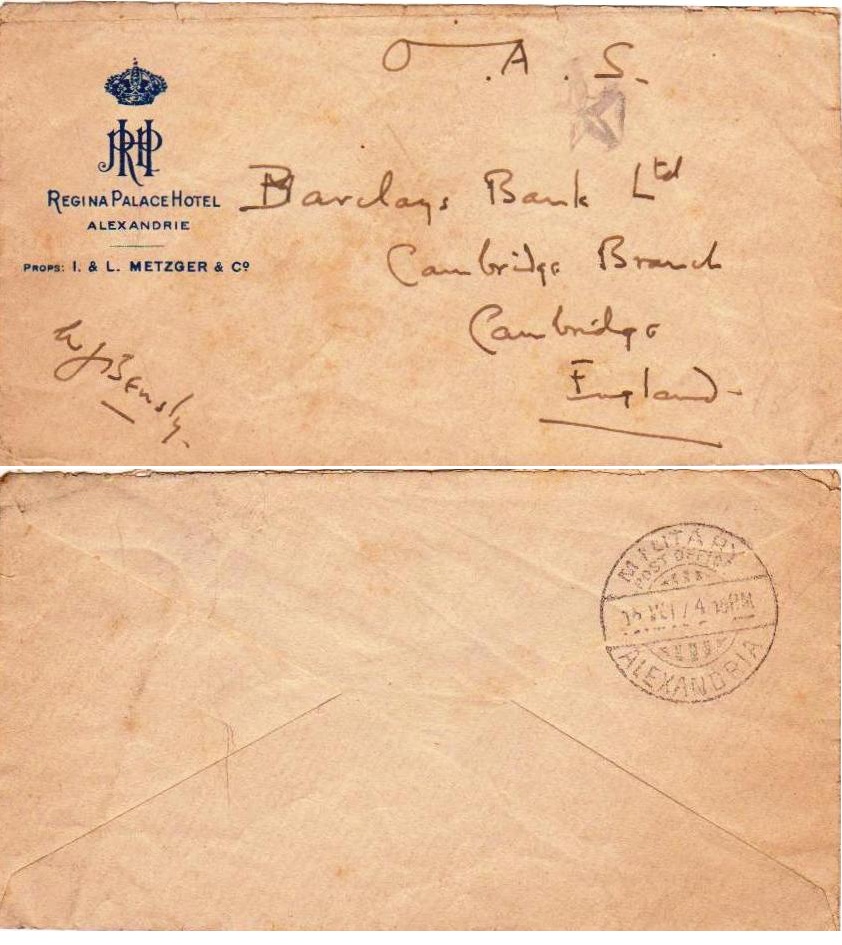 O.A.S.
RHP
REGINA PALACE HOTEL
ALEXANDRIE
PROPS: I. & L. METZGER & Cº
Barclays Bank Ltd
Cambridge Branch
Cambridge
England
Bensly
MILITARY
POST OFFICE
PM
ALEXANDRIA